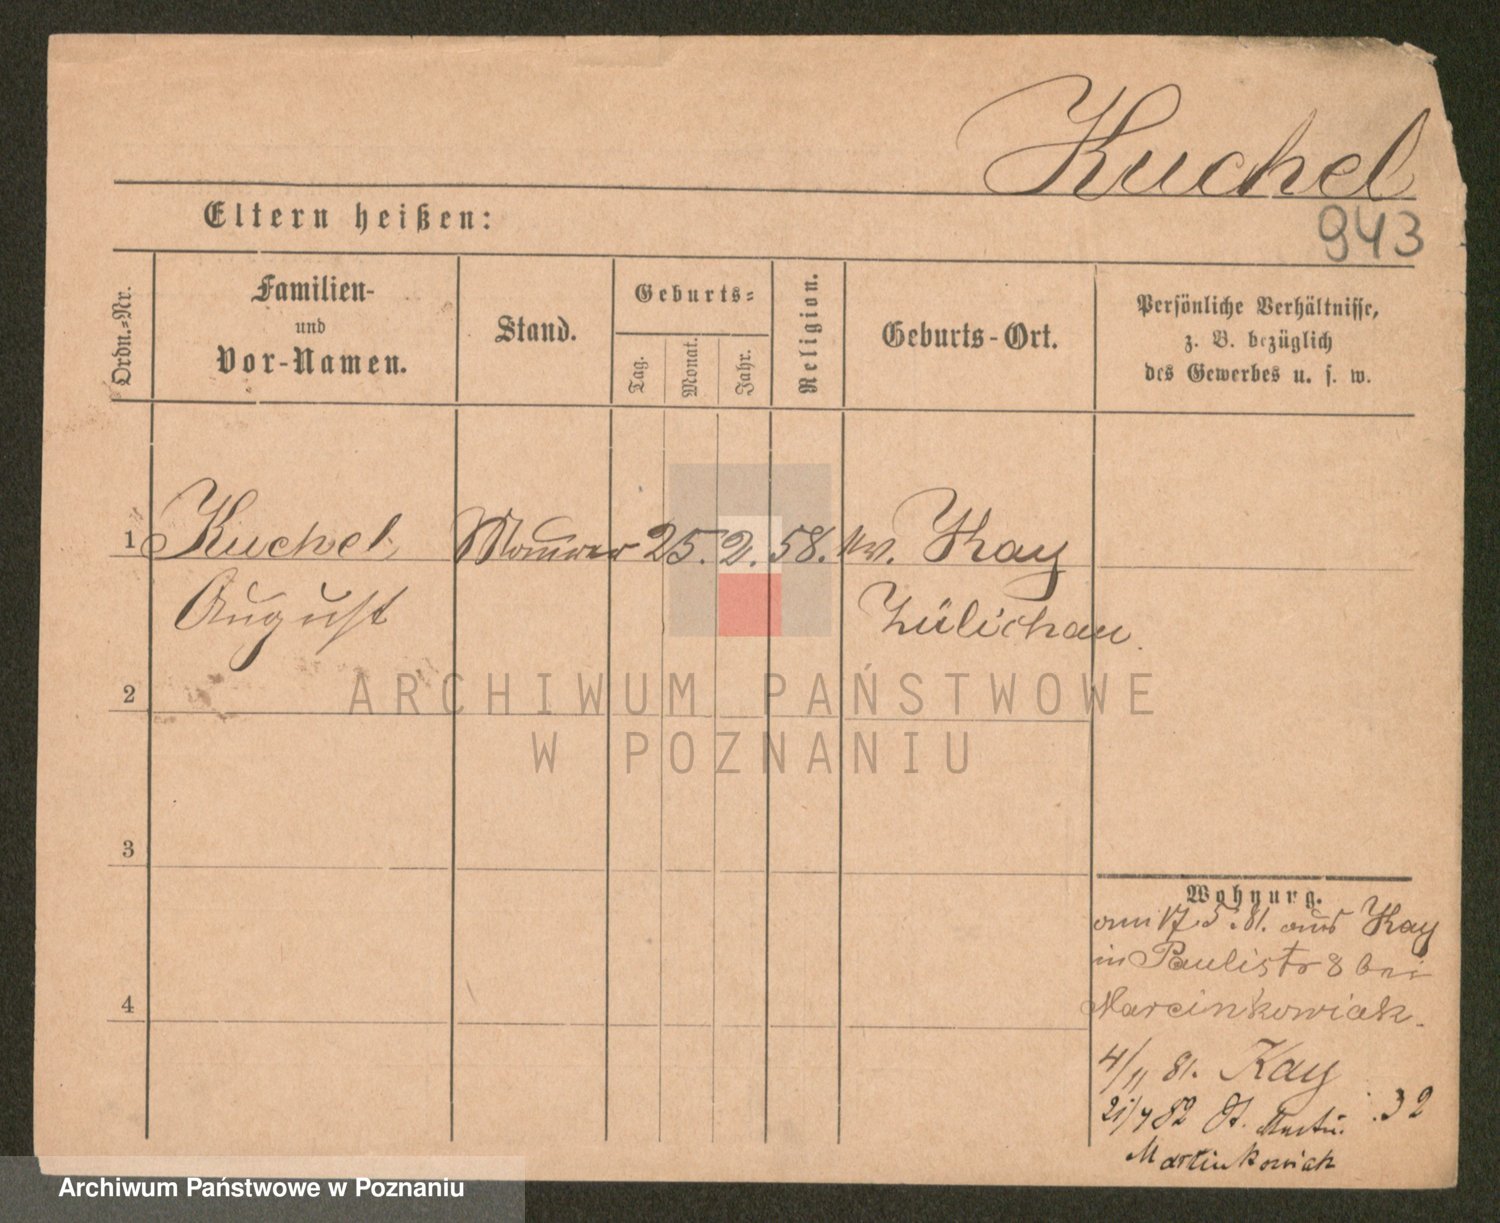 Kuchel
943
Eltern heißen:
Ordn.-Nr.
Familien-
und
Vor-Namen.
Stand.
Geburts-
Tag.
Monat.
Jahr.
Religion.
Geburts-Ort.
Persönliche Verhältnisse,
z. B. bezüglich
des Gewerbes u. s. w.
1 Kuchel Maurer 25. 2. 58. ev. Kay
August Zülichau.
2
ARCHIWUM PAŃSTWOWE
W POZNANIU
3
4
Wohnung.
am 17 5. 81. aus Kay
in Paulistr 8 bei
Marcinkowiak.
4/11 81. Kay
21/4 82 St. Martin. 32
Martinkowiak
Archiwum Państwowe w Poznaniu